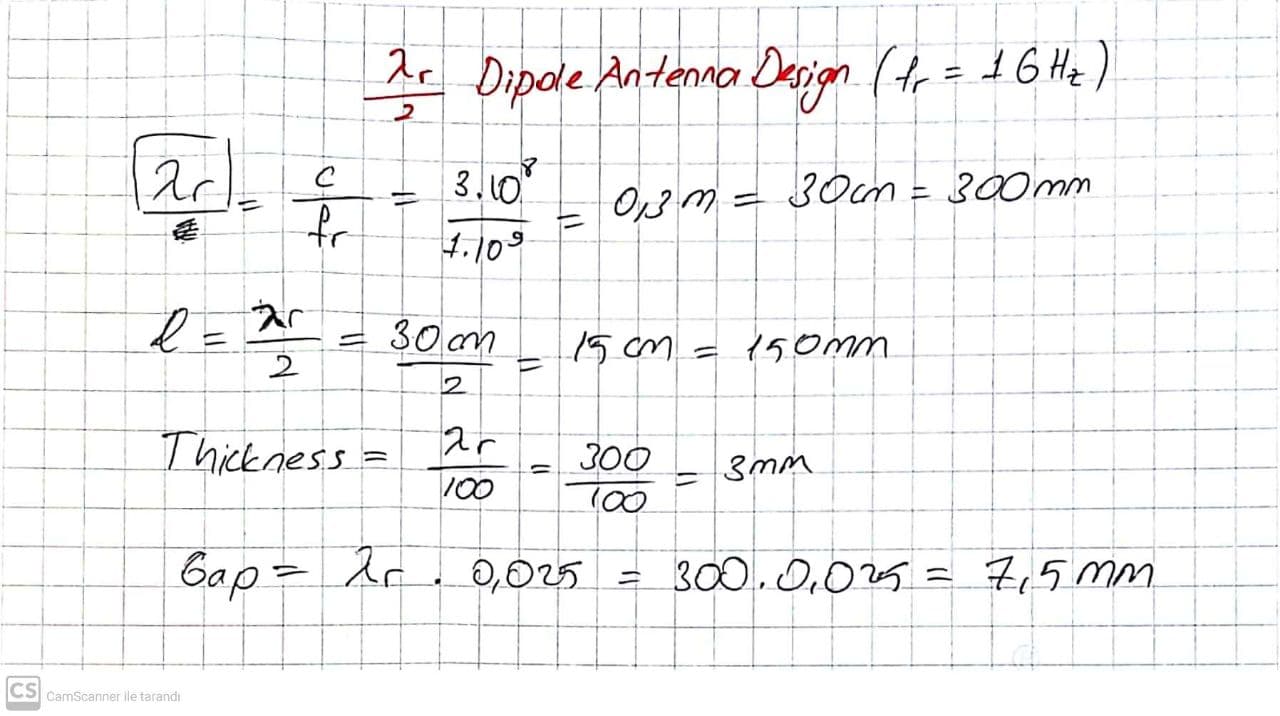 λr/2 Dipole Antenna Design (fr = 1 GHz)
λr = c/fr = 3.10⁸/1.10⁹ = 0,3 m = 30cm = 300mm
l = λr/2 = 30cm/2 = 15 cm = 150mm
Thickness = λr/100 = 300/100 = 3mm
Gap = λr . 0,025 = 300.0,025 = 7,5 mm
CS CamScanner ile tarandı